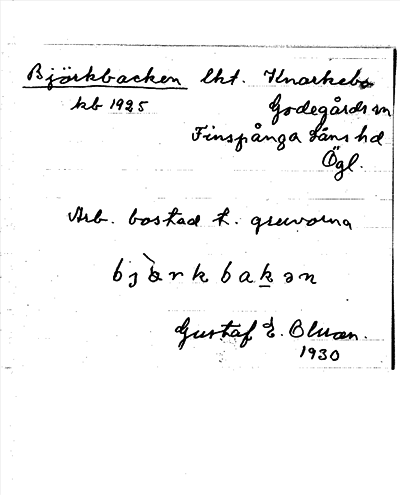 Björkbacken lht. Knarkebo
kb 1925 Godegårds sn
Finspånga läns hd
Ögl.
Arb. bostad t. gruvorna
bjàrkbakən
Gustaf E. Bluan.
1930